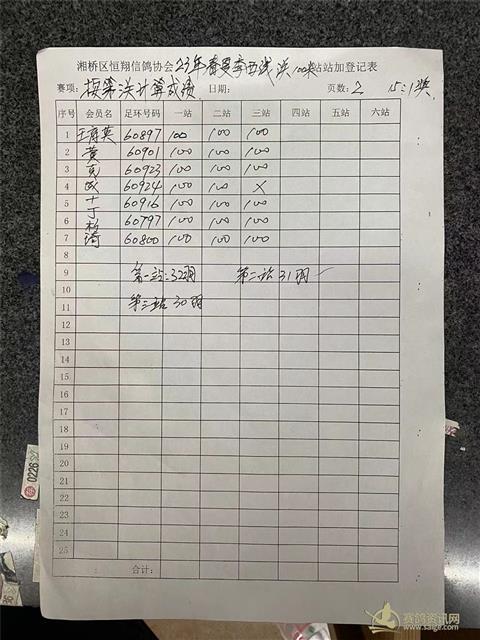 湘桥区恒翔信鸽协会23年春季西线 100 站站加登记表
赛项: 按算法计算成绩 日期: 页数: 2 15:1奖
序号 会员名 足环号码 一站 二站 三站 四站 五站 六站
1 60897 100 100 100
2 黄 60901 100 100 100
3 克 60923 100 100 100
4 成 60924 100 100 ×
5 十 60916 100 100 100
6 丁 60797 100 100 100
7 60800 100 100 100
8
9 第一站:32羽 第二站 31羽
10
11 第三站 30羽
12
13
14
15
16
17
18
19
20
21
22
23
24
25
合计:
0226
赛鸽资讯网
www.saige.com